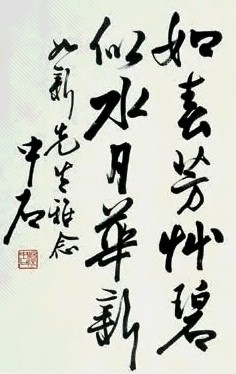 如春芳艸碧
似水月華新
如新先生雅念
中石